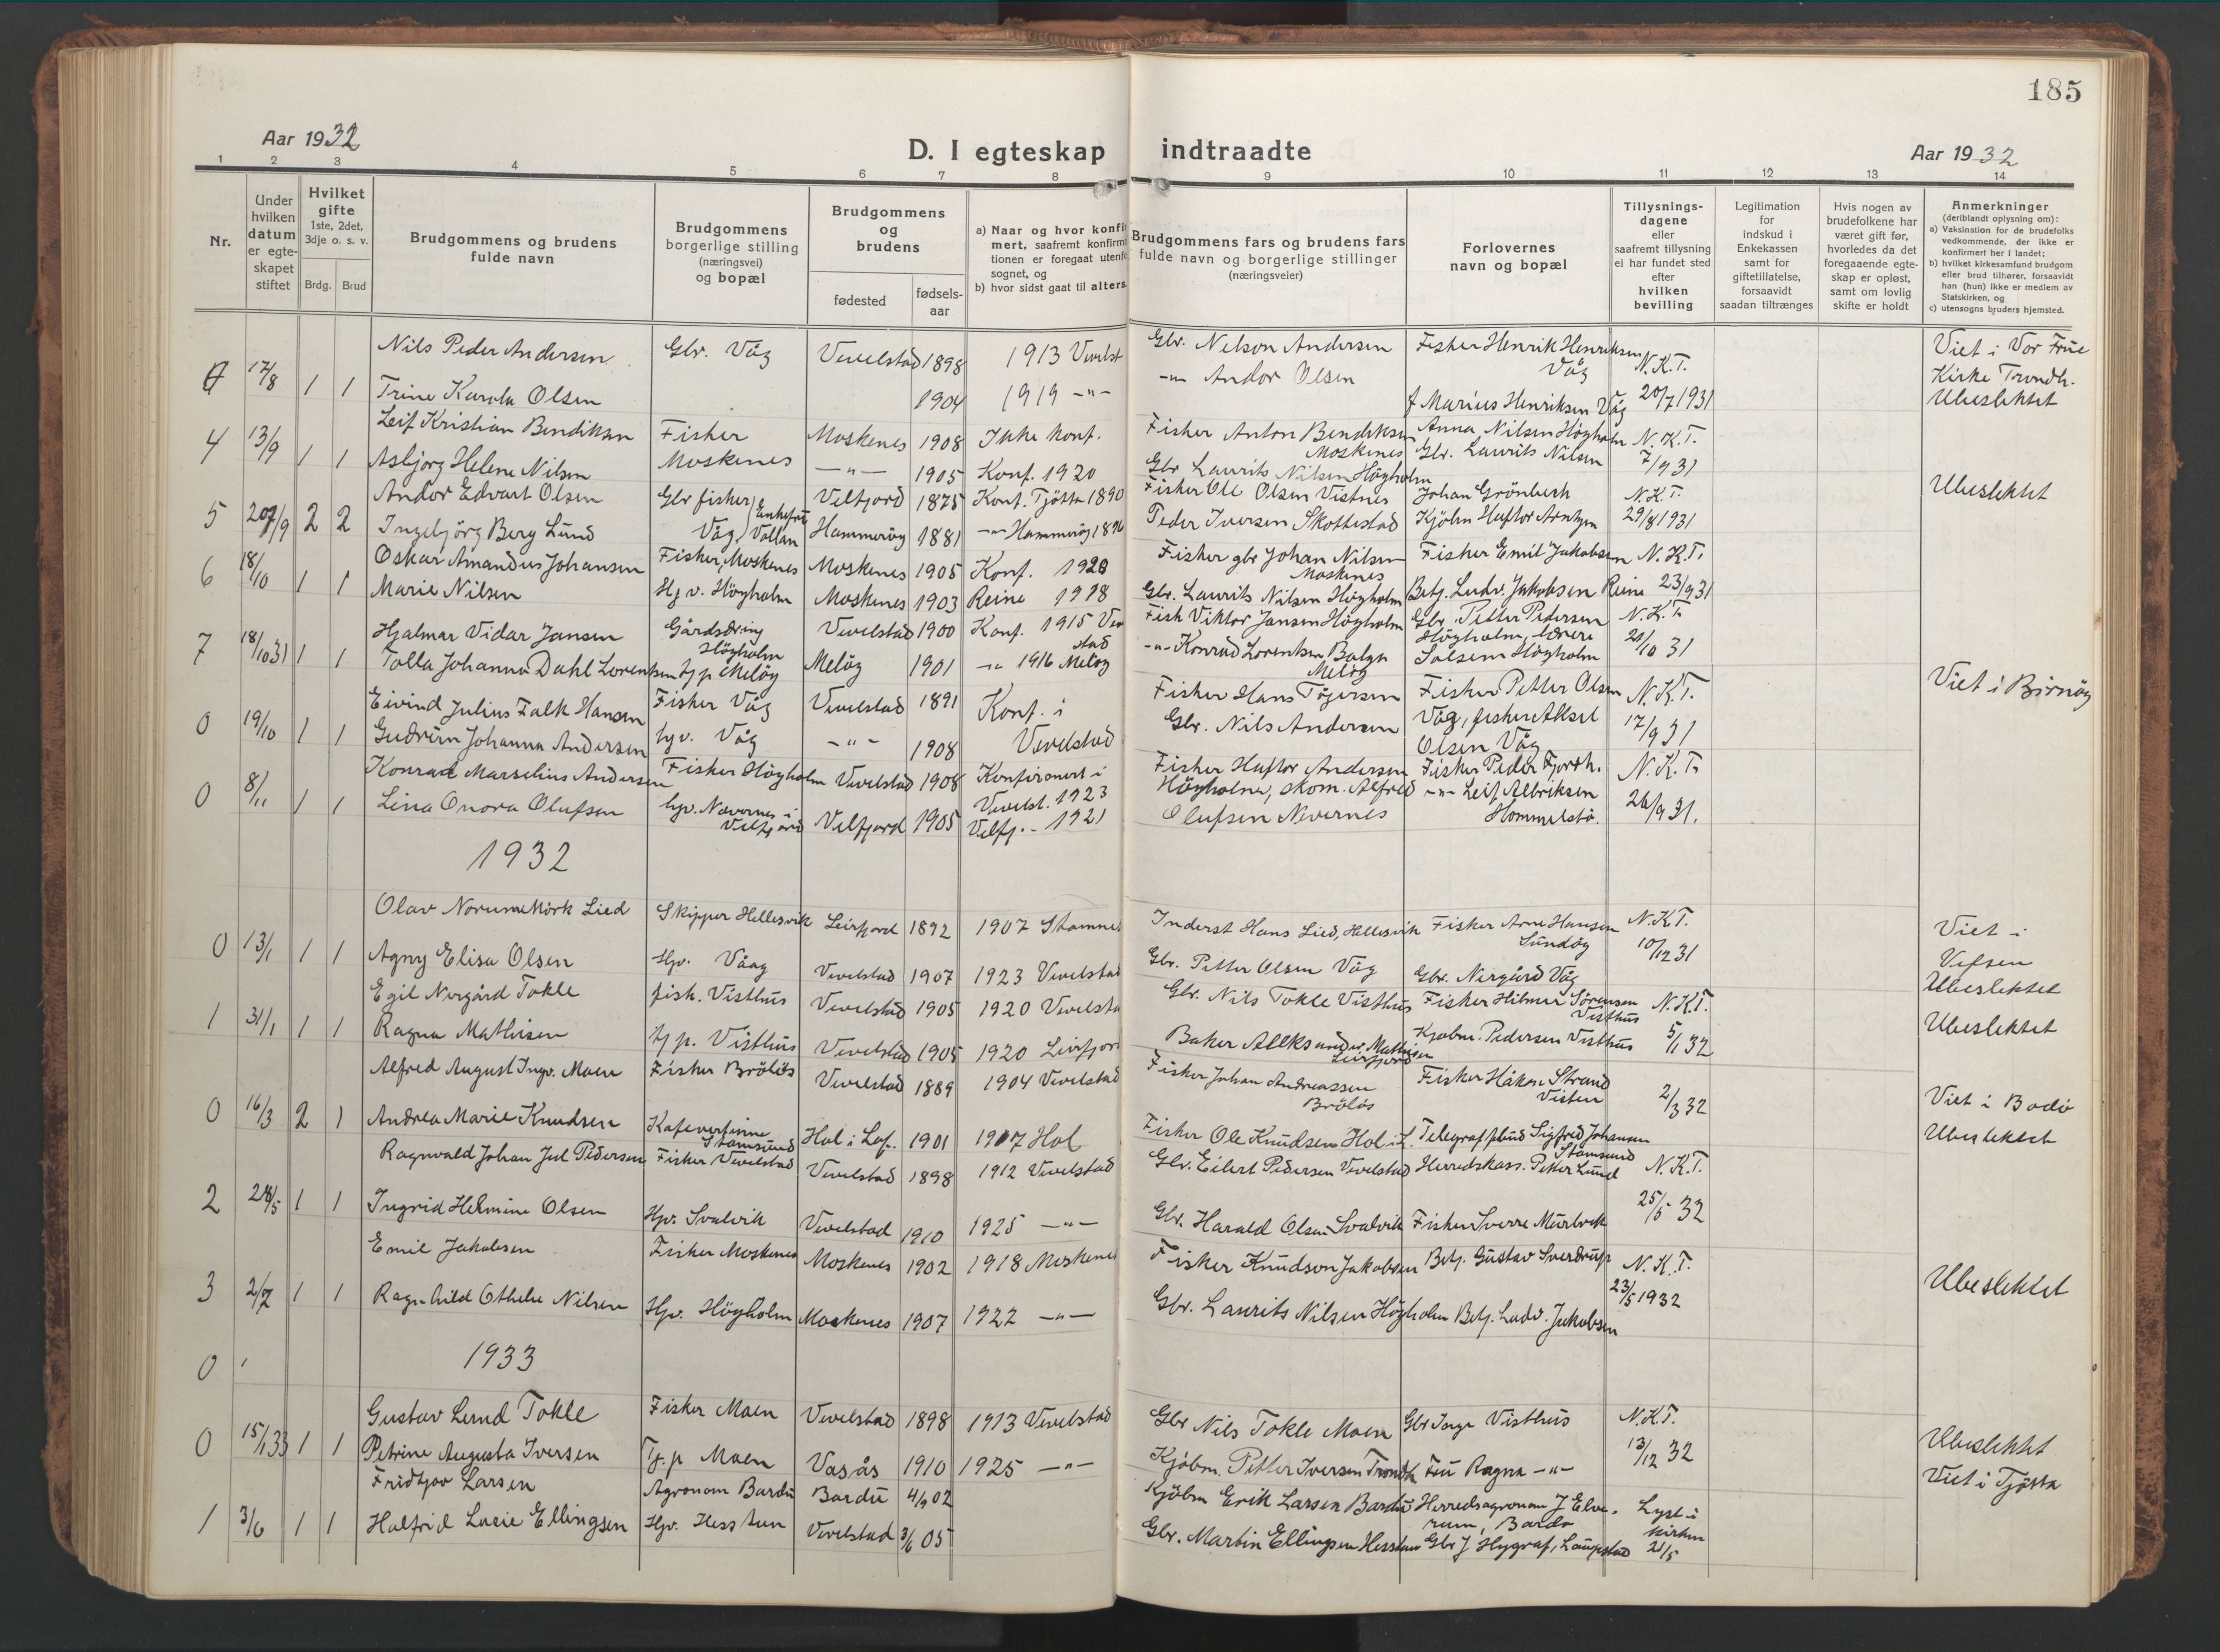 185
Aar 1932
D. I egteskap indtraadte
Aar 1932
1 2 3 4 5 6 7 8 9 10 11 12 13 14
Nr.
Under hvilken datum er egte-skapet stiftet
Hvilket gifte 1ste, 2det, 3dje o. s. v.
Brdg. Brud
Brudgommens og brudens fulde navn
Brudgommens borgerlige stilling (næringsvei) og bopæl
Brudgommens og brudens
fødested
fødsels-aar
a) Naar og hvor konfir
mert, saafremt konfirm
tionen er foregaat utenfo
sognet, og
b) hvor sidst gaat til alters.
Brudgommens fars og brudens fars
fulde navn og borgerlige stillinger
(næringsveier)
Forlovernes
navn og bopæl
Tillysnings-
dagene
eller
saafremt tillysning
ei har fundet sted
efter
hvilken
bevilling
Legitimation
for
indskud i
Enkekassen
samt for
giftetillatelse,
forsaavidt
saadan tiltrænges
Hvis nogen av
brudefolkene har
været gift før,
hvorledes da det
foregaaende egte-
skap er opløst,
samt om lovlig
skifte er holdt
Anmerkninger
(deriblandt oplysning om):
a) Vaksination for de brudefolks
vedkommende, der ikke er
konfirmert her i landet;
b) hvilket kirkesamfund brudgom
eller brud tilhører, forsaavidt
han (hun) ikke er medlem av
Statskirken, og
c) utensogns bruders hjemsted.
Nils Peder Andersen Gbr. Våg Vevelstad 1898 1913 Vevelst Gbr. Nelson Andersen Fisker Henrik Henriksen Våg N.K.T. Viet i Vor Frue
17/8 1 1 Trine Karola Olsen 1904 1919 -"- -"- Andor Olsen f Marius Henriksen Våg 20/7 1931 Kirke Trondh. Ubeslektet
Leif Kristian Bendiksen Fisker Moskenes 1908 Ikke konf. Fisker Anton Bendiksen Moskenes Anna Nilsen Høyholm N.K.T.
4 13/9 1 1 Asbjørg Helene Nilsen Moskenes -"- 1905 Konf. 1920 Gbr Laurits Nilsen Høyholm Gbr. Laurits Nilsen 7/9 31
Andor Edvart Olsen Gbr fisker Velfjord 1875 Konf. Tjøtta 1890 Fisker Ole Olsen Vistnes Johan Grønbech N.K.T. Ubeslektet
5 207/9 2 2 Ingebjørg Berg Lund Våg, Enkefru Vollan Hammerøy 1881 -"- Hammerøy 1896 Peder Iversen Skottestad Kjøbm Haftor Arntzen 29/8 1931
Oskar Amandus Johansen Fisker, Moskenes Moskenes 1905 Konf. 1920 Fisker gbr Johan Nilsen Moskenes Fisker Emil Jakobsen N.K.T.
6 18/10 1 1 Marie Nilsen Hj v. Høyholm Moskenes 1903 Reine 1918 Gbr. Laurits Nilsen Høyholm Betj. Ludv. Jakobsen Reine 23/9 31
Hjalmar Vidar Jansen Gårdsdreng Høyholm Vevelstad 1900 Konf. 1915 Vev stad Fisk Viktor Jansen Høyholm Gbr. Petter Pedersen N.K.T.
7 18/10 31 1 1 Tolla Johanna Dahl Lorentsen tj p Meløy Meløy 1901 -"- 1916 Meløy -"- Konrad Lorentsen Bolga Meløy Høyholm, lærer Solsem Høyholm 20/10 31
Eivind Julius Falk Hansen Fisker Våg Vevelstad 1891 Konf. i Fisker Hans Tøgersen Fisker Petter Olsen N.K.T. Viet i Bjrnøy
0 19/10 1 1 Gudrun Johanna Andersen hjv. Våg -"- 1908 Vevelstad Gbr. Nils Andersen Våg, fisker Aksel Olsen Våg 17/9 31
Konrad Marselius Andersen Fisker Høyholm Vevelstad 1908 Konfirmert i Vevelst. 1923 Fisker Haftor Andersen Fisker Peder Fjorth. N.K.T.
0 8/11 1 1 Lina Onora Olufsen hjv. Nævernes i Velfjord Velfjord 1905 Velfj. - 1921 Høyholm, skom. Alfred Olufsen Nevernes -"- Leif Albriksen Hommelstø. 26/9 31.
1932
Olav Norum Mørk Lied Skipper Hellesvik Leirfjord 1892 1907 Stamnes Inderst Hans Lied, Hellesvik Fisker Arne Hansen Sundøy N.K.T. Viet i
0 13/1 1 1 Agny Elisa Olsen Hjv. Våag Vevelstad 1907 1923 Vevelstad Gbr. Petter Olsen Våg Gbr. Nergård Våg 10/12 31 Vefsen Ubeslektet
Egil Nergård Tokle fisk. Visthus Vevelstad 1905 1920 Vevelsta Gbr. Nils Tokle Visthus Fisker Hilmar Sørensen Visthus N.K.T.
1 31/1 1 1 Ragna Mathisen tj p. Visthus Vevelstad 1905 1920 Leirfjor Baker Alleksander Mathisen Leirfjord Kjøbm. Pedersen Visthus 5/1 32 Ubeslektet
Alfred August Ingv. Moen Fisker Brøløs Vevelstad 1889 1904 Vevelstad Fisker Johan Andreassen Brøløs Fisker Håkon Strand Visten
0 16/3 2 1 Andrea Marie Knudsen Kafevertinne Stamsund Hol i Lof. 1901 1917 Hol Fisker Ole Knudsen Hol i L. Telegrafbud Sigfred Johansen Stamsund 2/3 32 Viet i Bodø Ubeslektet
Ragnvald Johan Jul Pedersen Fisker Vevelstad Vevelstad 1898 1912 Vevelstad Gbr. Eilert Pedersen Vevelstad Herredskass. Petter Lund N.K.T.
2 28/5 1 1 Ingrid Helmine Olsen Hjv. Svalvik Vevelstad 1910 1925 -"- Gbr. Harald Olsen Svalvik Fisker Sverre Murbrek 25/5 32
Emil Jakobsen Fisker Moskenes Moskenes 1902 1918 Moskenes Fisker Knudson Jakobsen Betj. Gustav Sverdrup N.K.T.
3 2/7 1 1 Ragnhild Othelie Nilsen Hjv. Høyholm Moskenes 1907 1922 -"- Gbr. Laurits Nilsen Høyholm Betj. Ludv. Jakobsen 23/5 1932 Ubeslektet
0 1933
Gustav Lund Tokle Fisker Moen Vevelstad 1898 1913 Vevelstad Gbr Nils Tokle Moen Gbr Inge Visthus N.K.T.
0 15/1 33 1 1 Petrine Augusta Iversen Tj. p Moen Vasås 1910 1925 -"- Kjøbm. Petter Iversen Trondh Fru Ragna -"- 13/12 32 Ubeslektet
Fridtjov Larsen Agronom Bardu Bardu 4/9 02 Kjøbm Erik Larsen Bardu Herredsagronom J Elve-rum, Bardo Lyst i kirken Viet i Tjøtta
1 3/6 1 1 Halfrid Lucie Ellingsen Hjv. Hesstun Vevelstad 3/6 05 Gbr. Martin Ellingsen Hesstun Gbr J Hygraf, Laupstad 21/5